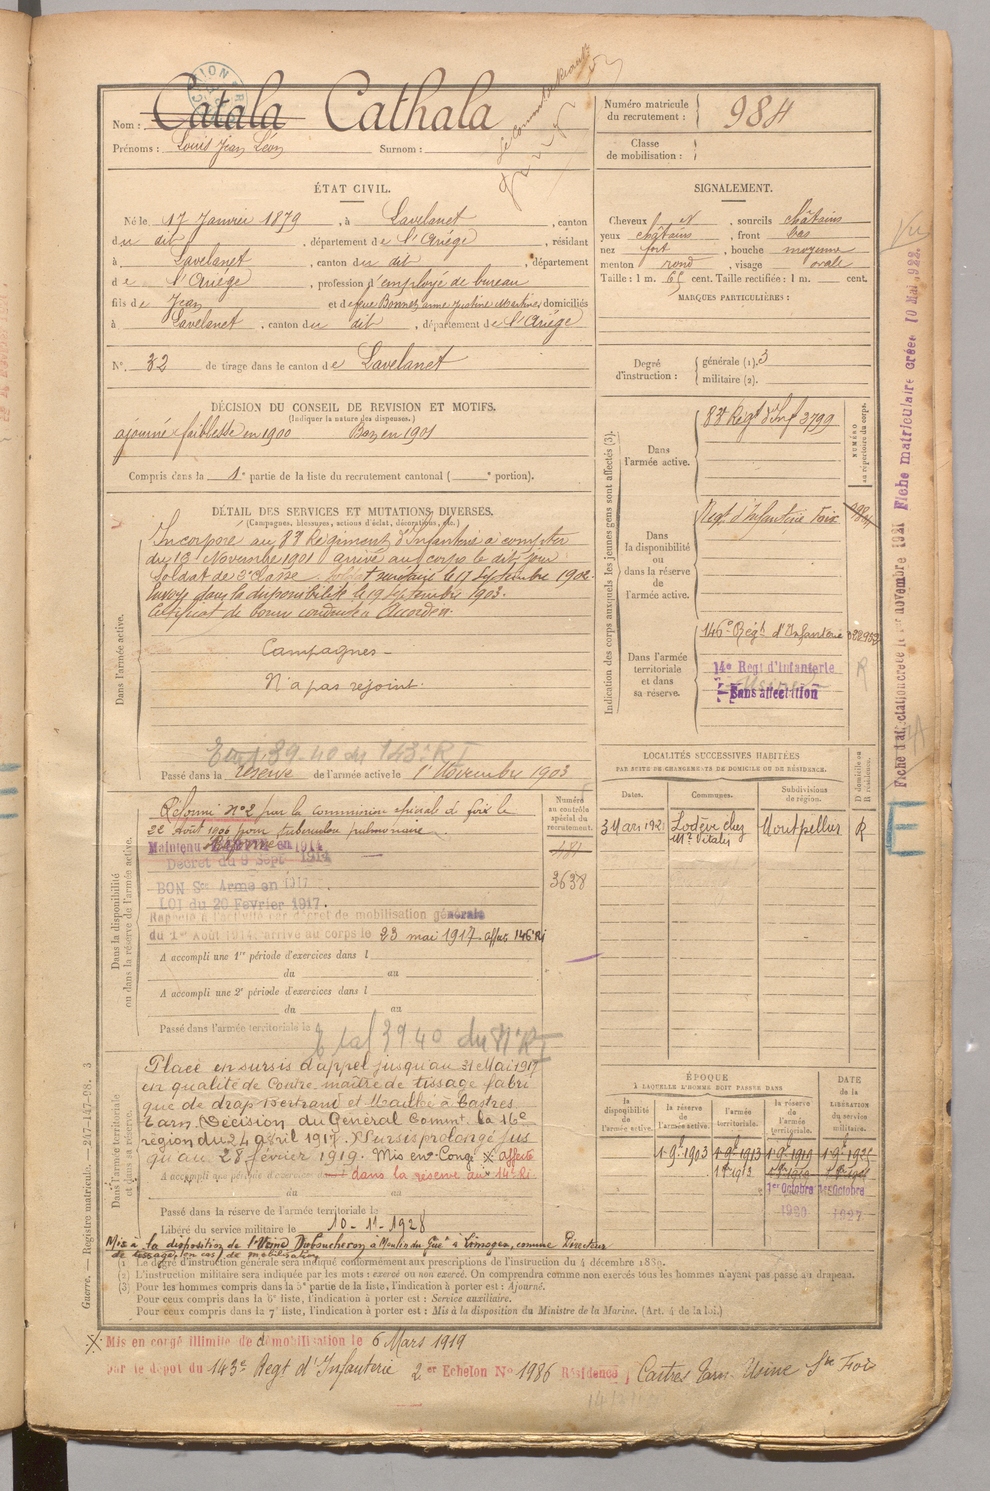 Nom : Catala Cathala
Prénoms : Louis Jean Léon Surnom :
Numéro matricule du recrutement : 984
Classe de mobilisation :
ÉTAT CIVIL.
Né le 17 Janvier 1879, à Lavelanet, canton
du dit, département de l'Ariège, résidant
à Lavelanet, canton du dit, département
de l'Ariège, profession d'employé de bureau
fils de Jean et de feue Bonnet anne Justine Martine, domiciliés
à Lavelanet, canton du dit, département de l'Ariège
N° 32 de tirage dans le canton de Lavelanet
SIGNALEMENT.
Cheveux N, sourcils châtains
yeux châtains, front bas
nez fort, bouche moyenne
menton rond, visage ovale
Taille : 1 m. 65 cent. Taille rectifiée : 1 m. cent.
MARQUES PARTICULIÈRES :
Degré d'instruction : générale (1). 3
militaire (2).
DÉCISION DU CONSEIL DE REVISION ET MOTIFS.
(Indiquer la nature des dispenses.)
ajourné faiblesse en 1900 Bon en 1901
Compris dans la 1e partie de la liste du recrutement cantonal ( e portion).
DÉTAIL DES SERVICES ET MUTATIONS DIVERSES.
(Campagnes, blessures, actions d'éclat, décorations, etc.)
Dans l'armée active.
Incorporé au 83e Régiment d'Infanterie à compter
du 13 Novembre 1901 arrivé au corps le dit jour
Soldat de 2e classe soldat musicien le 17 Septembre 1902.
Envoyé dans la disponibilité le 19 Septembre 1903.
Certificat de bonne conduite "Accordé".
Campagnes
N'a pas rejoint.
39-40 du 143e RI
Passé dans la réserve de l'armée active le 1er Novembre 1903
Indication des corps auxquels les jeunes gens sont affectés (3).
NUMÉRO au répertoire du corps.
Dans l'armée active. 83e Regt d'Inf 3799
Dans la disponibilité ou dans la réserve de l'armée active. Regt d'Infanterie Foix 984
Dans l'armée territoriale et dans sa réserve. 146e Régt d'Infanterie
14e Regt d'Infanterie R
Sans affectation
Fiche d'affectation créée le 1er novembre 1921 Fiche matriculaire créée 10 Mai 1928.
Vu
Dans la disponibilité ou dans la réserve de l'armée active.
Réformé N°2 par la commission spéciale de foix le
22 Août 1906 pour tuberculose pulmonaire.
Maintenu Réformé en 1914
Décret du 9 Sept 1914
BON Sce Armé en 1917
LOI du 20 Février 1917.
Rappelé à l'activité par décret de mobilisation générale
du 1er Août 1914, arrivé au corps le 23 mai 1917 affecté 146e RI
A accompli une 1re période d'exercices dans l
du au
A accompli une 2e période d'exercices dans l
du au
Passé dans l'armée territoriale le
Numéro au contrôle spécial du recrutement.
481
3638
LOCALITÉS SUCCESSIVES HABITÉES
PAR SUITE DE CHANGEMENTS DE DOMICILE OU DE RÉSIDENCE.
Dates. Communes. Subdivisions de région. D domicile ou R résidence.
3 Mars 1921 Lodève chez Mr Vitalis Montpellier R
Dans l'armée territoriale et dans sa réserve.
Placé en sursis d'appel jusqu'au 31 Mai 1917
en qualité de Contre maître de tissage fabri
que de drap Bertrand et Maillé à Castres
Tarn. Décision du Général Commt la 16e
région du 24 avril 1917. Sursis prolongé jus
qu'au 28 février 1919. Mis en Congé X affecté
dans la réserve au 14e RI
A accompli une période d'exercices dans l
du au
Passé dans la réserve de l'armée territoriale le
Libéré du service militaire le 10-11-1928
Mis à la disposition de l'Usine à Moulin du à Limoges, comme Directeur
de tissage (en cas) de mobilisation
ÉPOQUE
À LAQUELLE L'HOMME DOIT PASSER DANS
la disponibilité de l'armée active. la réserve de l'armée active. l'armée territoriale. la réserve de l'armée territoriale. DATE de la LIBÉRATION du service militaire.
1-9bre 1903 1-9bre 1913 1-9bre 1919 1-9bre 1925
1er Octobre 1er Octobre
1920 1927
(1) Le degré d'instruction générale sera indiqué conformément aux prescriptions de l'instruction du 4 décembre 1889.
(2) L'instruction militaire sera indiquée par les mots : exercé ou non exercé. On comprendra comme non exercés tous les hommes n'ayant pas passé au drapeau.
(3) Pour les hommes compris dans la 5e partie de la liste, l'indication à porter est : Ajourné.
Pour ceux compris dans la 6e liste, l'indication à porter est : Service auxiliaire.
Pour ceux compris dans la 7e liste, l'indication à porter est : Mis à la disposition du Ministre de la Marine. (Art. 4 de la loi.)
Guerre. — Registre matricule. — 247-147-98. 3
X Mis en congé illimité de démobilisation le 6 Mars 1919
par le dépot du 143e Regt d'Infanterie 2er Echelon N° 1986 Résidence, Castres Tarn Usine Ste Foix